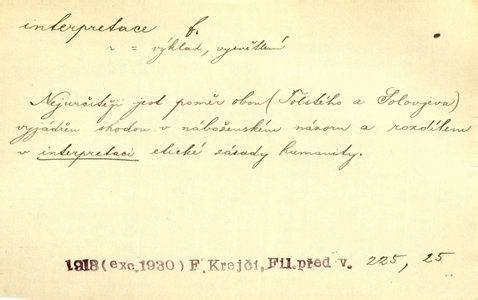 interpretace f.
~ = výklad, vysvětlení
Nejurčitěji jest poměr obou (Tolstého a Solovjeva)
vyjádřen shodou v náboženském názoru a rozdílem
v interpretaci etické zásady humanity.
1918 (exc. 1930) F. Krejčí, Fil. před v. 225, 25